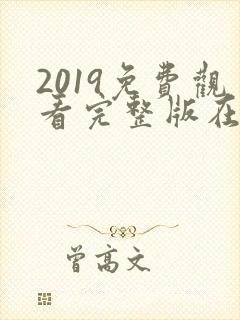 2019免費觀
看完整版在
曾高文